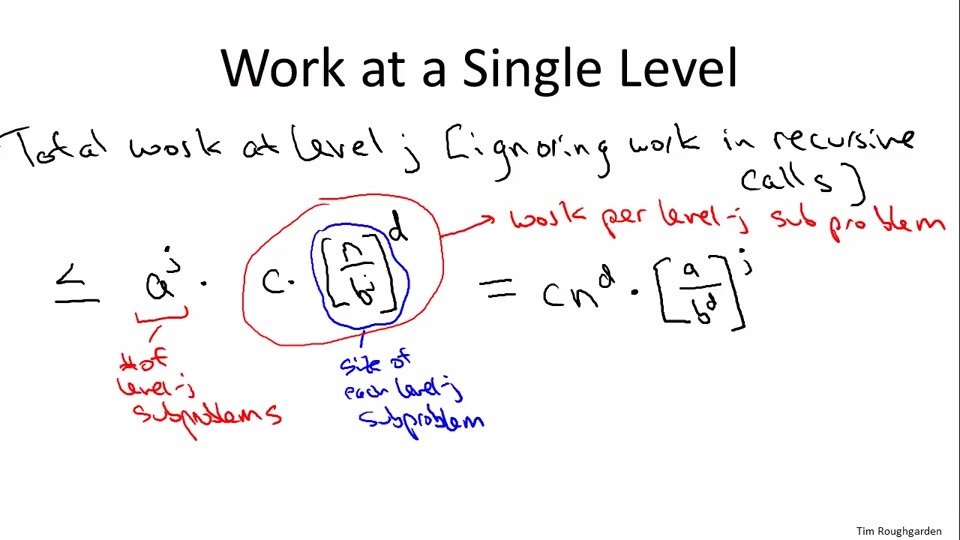 Work at a Single Level
Total work at level j [ignoring work in recursive
calls]
→ work per level-j subproblem
≤ a^j · c · [n/b^j]^d = cn^d · [a/b^d]^j
# of
level-j
subproblems
size of
each level-j
subproblem
Tim Roughgarden